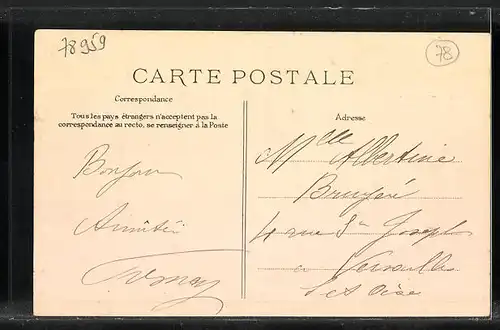 78959
78
CARTE POSTALE
Correspondance
Tous les pays étrangers n'acceptent pas la
correspondance au recto, se renseigner à la Poste
Adresse
Bonjour
Amitiés
Mlle Albertine
Bruyère
4 rue St Joseph
à Versailles
S et Oise